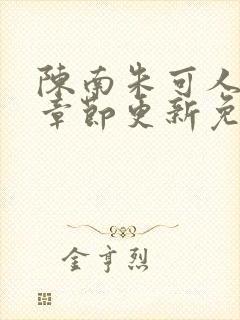 陈南朱可人
章节更新免
金亨烈